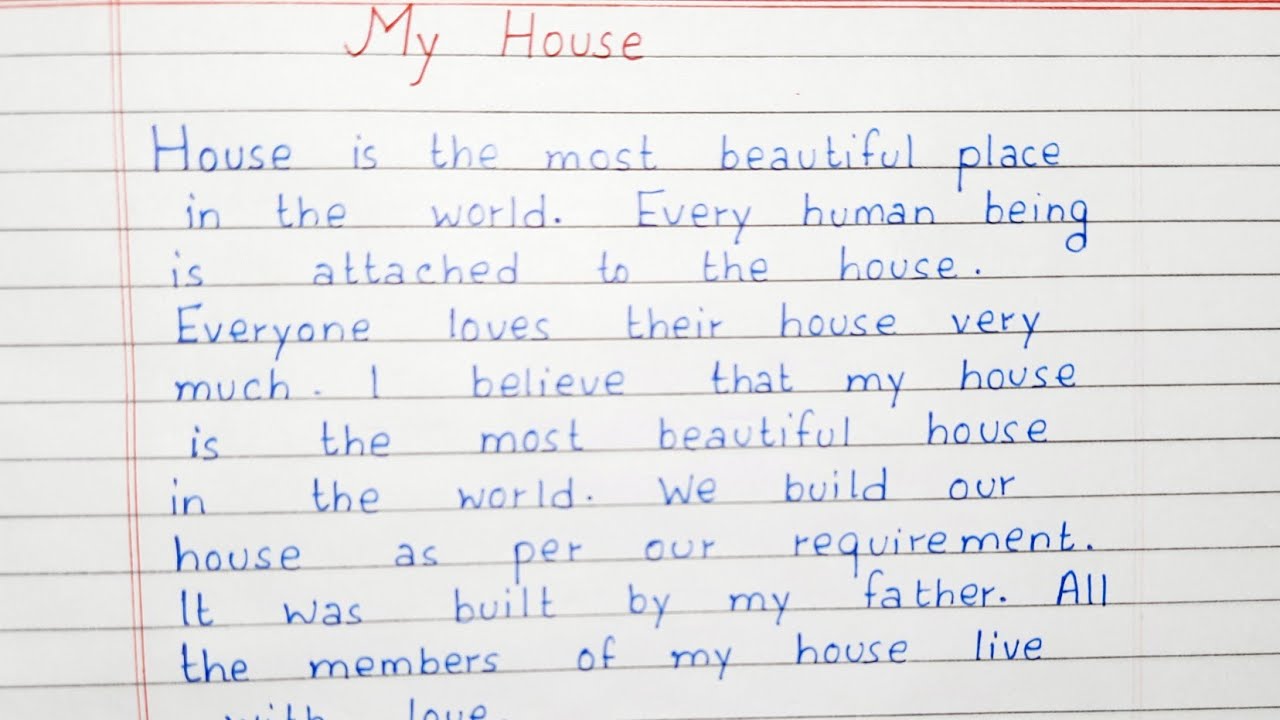 My House
House is the most beautiful place
in the world. Every human being
is attached to the house.
Everyone loves their house very
much. I believe that my house
is the most beautiful house
in the world. We build our
house as per our requirement.
It was built by my father. All
the members of my house live
with love.